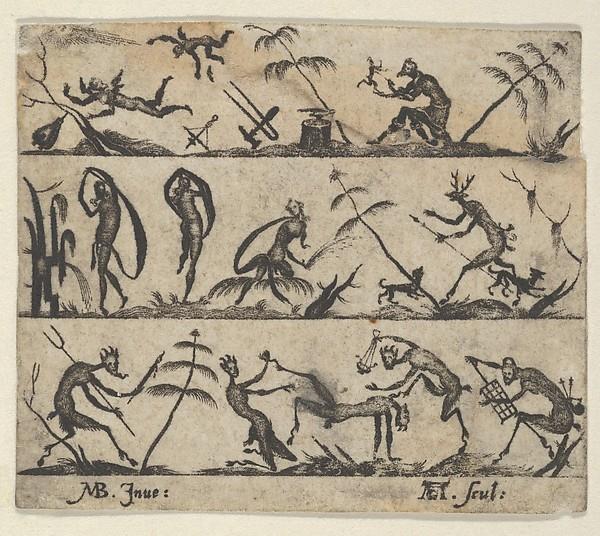 MB. Inue: AH. Scul: